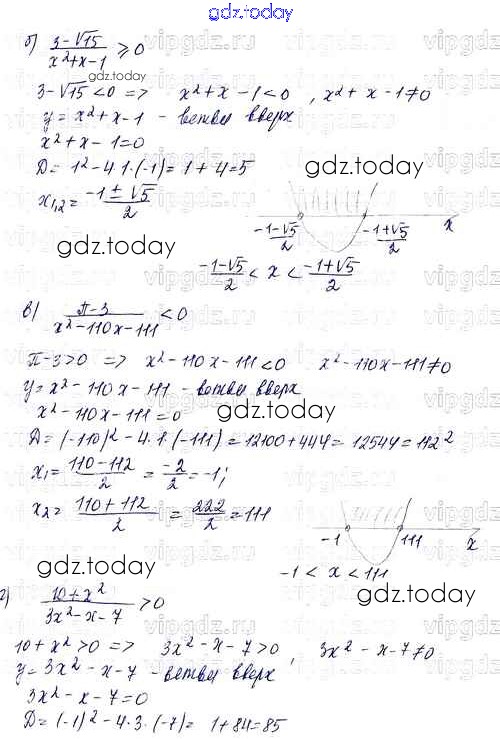 gdz.today
б) (3-√15)/(x²+x-1) ⩾ 0
gdz.today
3-√15<0 => x²+x-1<0, x²+x-1≠0
y=x²+x-1 - ветви вверх
x²+x-1=0
D=1²-4·1·(-1)=1+4=5
gdz.today
x₁,₂=(-1±√5)/2
(-1-√5)/2 (-1+√5)/2 x
gdz.today
(-1-√5)/2 < x < (-1+√5)/2
в) (π-3)/(x²-110x-111) <0
π-3>0 => x²-110x-111<0 x²-110x-111≠0
y=x²-110x-111 - ветви вверх
x²-110x-111=0
gdz.today
D=(-110)²-4·1·(-111)=12100+444=12544=112²
x₁=(110-112)/2=(-2)/2=-1;
x₂=(110+112)/2=222/2=111
-1 111 x
-1<x<111
gdz.today
г) (10+x²)/(3x²-x-7) >0
gdz.today
10+x²>0 => 3x²-x-7>0, 3x²-x-7≠0
y=3x²-x-7 - ветви вверх
3x²-x-7=0
D=(-1)²-4·3·(-7)=1+84=85